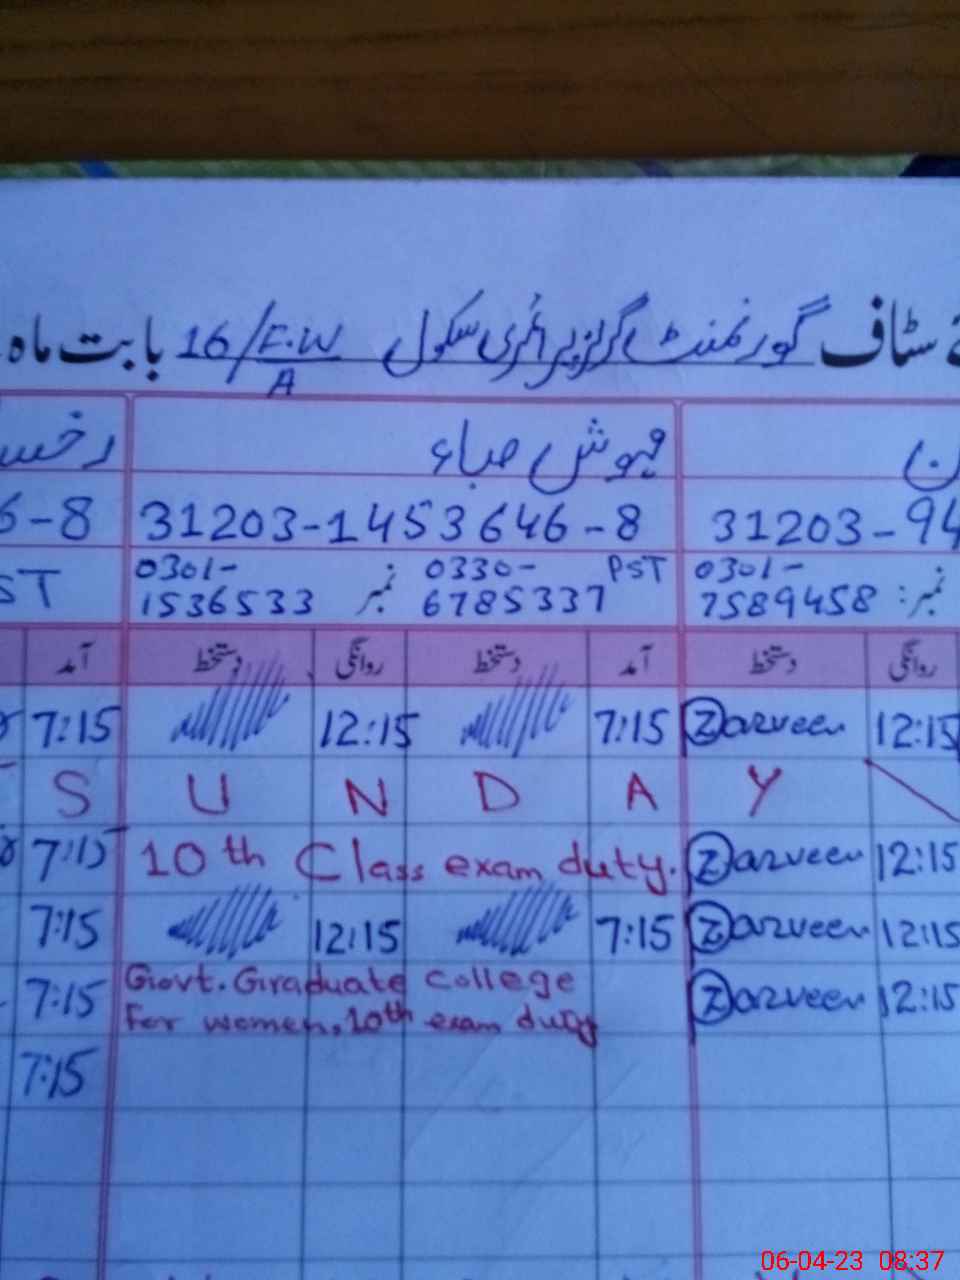 سٹاف گورنمنٹ گرلز پرائمری سکول 16/E.W بابت ماہ
A
31203-94 31203-1453646-8 6-8
0301- PST 0330- 0301-
نمبر: 7589458 6785337 نمبر 1536533 ST
روانگی دستخط آمد دستخط روانگی دستخط آمد
7:15 12:15 7:15 Zarveen 12:15
S U N D A Y
7:15 10th Class exam duty. Zarveen 12:15
7:15 12:15 7:15 Zarveen 12:15
7:15 Govt. Graduate College Zarveen 12:15
For women, 10th exam duty
7:15
06-04-23 08:37